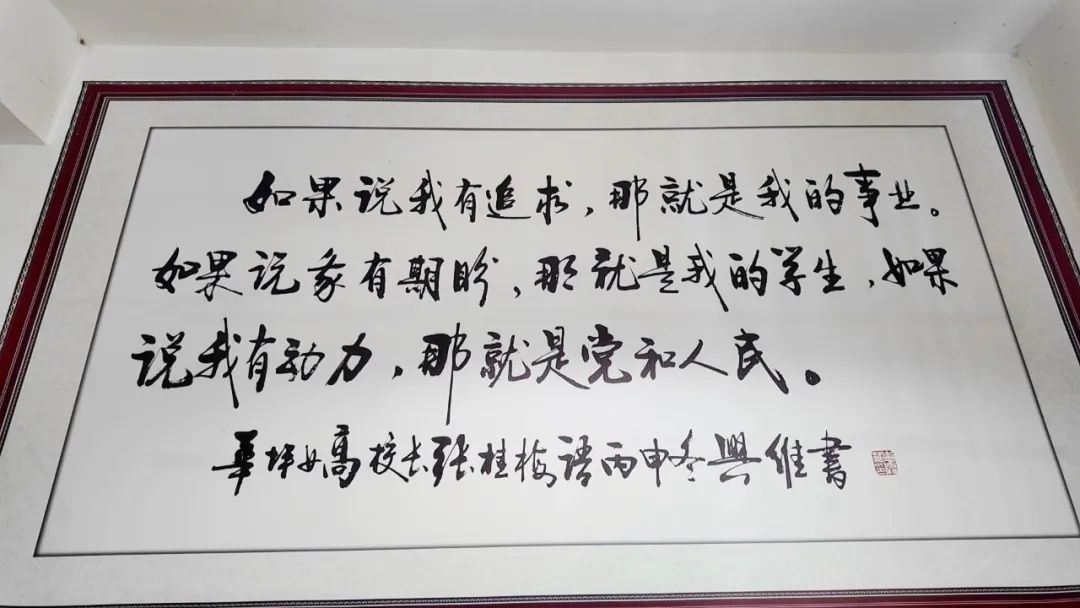 如果说我有追求，那就是我的事业。
如果说我有期盼，那就是我的学生，如果
说我有动力，那就是党和人民。
華坪女高校长张桂梅语丙申冬興维書